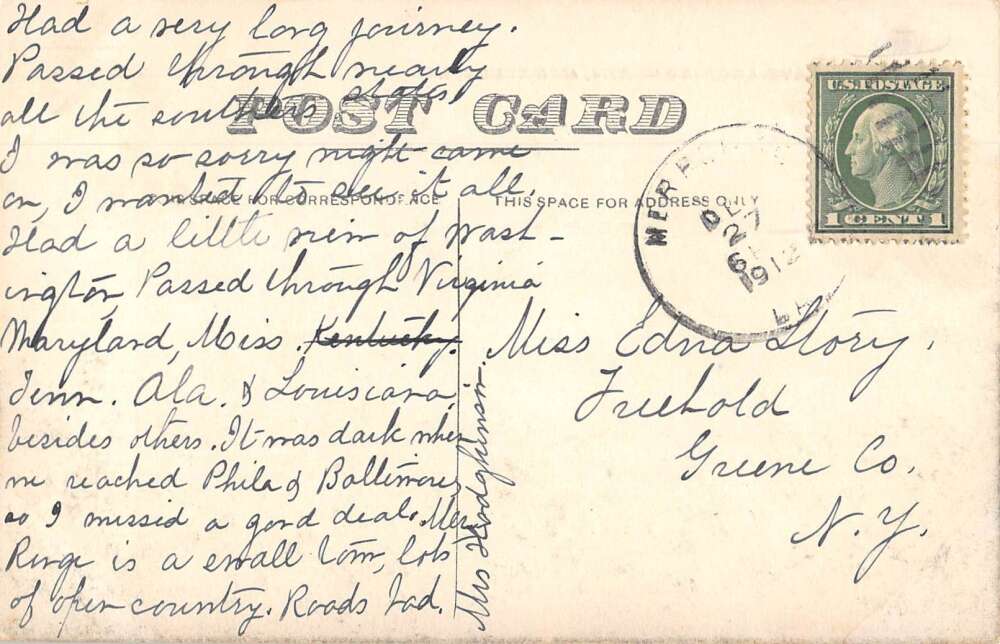 Had a very long journey.
Passed through nearly
all the southern states
I was so sorry night came
on, I wanted to see it all.
Had a little view of Wash-
ington, Passed through Virginia
Maryland, Miss. Kentucky.
Tenn. Ala. & Louisiana
besides others. It was dark when
we reached Phila & Baltimore,
so I missed a good deal. Mer
Rouge is a small town, lots
of open country. Roads bad.
Mrs Hodgkinson.
POST CARD
SPACE FOR CORRESPONDENCE
THIS SPACE FOR ADDRESS ONLY
MER
DEC
27
6
1912
LA
U.S. POSTAGE
1 CENT 1
Miss Edna Story,
Freehold
Greene Co.
N.Y.